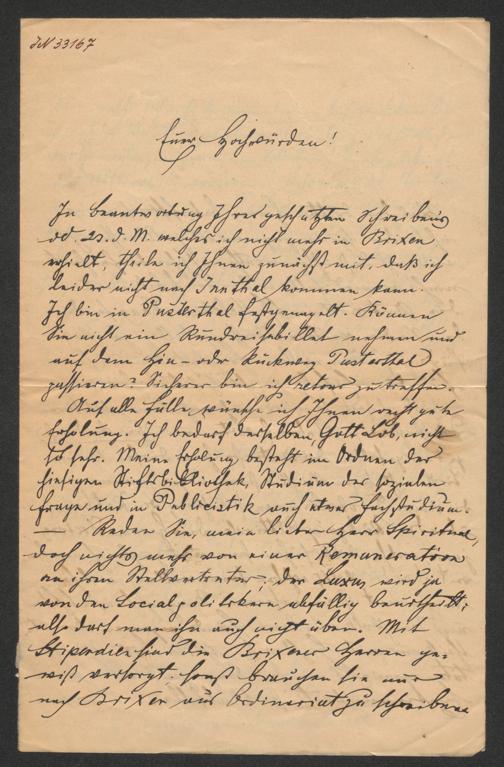 IN 33167
Euer Hochwürden!
In Beantwortung Ihres geschätzten Schreibens
dd. 23. d. M. welches ich nicht mehr in Brixen
erhielt, theile ich Ihnen zunächst mit, daß ich
leider nicht nach Innthal kommen kann.
Ich bin in Pusterthal festgenagelt. Können
Sie nicht ein Rundreisebillet nehmen und
auf dem Hin- oder Rückweg Pusterthal
passieren? Sicherer bin ich retour zu treffen.
Auf alle Fälle wünsche ich Ihnen recht gute
Erholung. Ich bedarf derselben Gott Lob, nicht
so sehr. Meine Erholung besteht im Ordnen der
hiesigen Stiftsbibliothek, Studium der sozialen
Frage und in Publicistik auch etwas Fachstudium.
— Reden Sie, mein lieber Herr Spiritual,
doch nichts mehr von einer Remuneration
an ihren Stellvertreter; der Luxus wird ja
von den Socialpolitikern abfällig beurtheilt;
also darf man ihn auch nicht üben. Mit
Stipendien sind die Brixener Herren ge-
wiß versorgt. Sonst brauchen Sie nur
nach Brixen ans Ordinariat zu schreiben